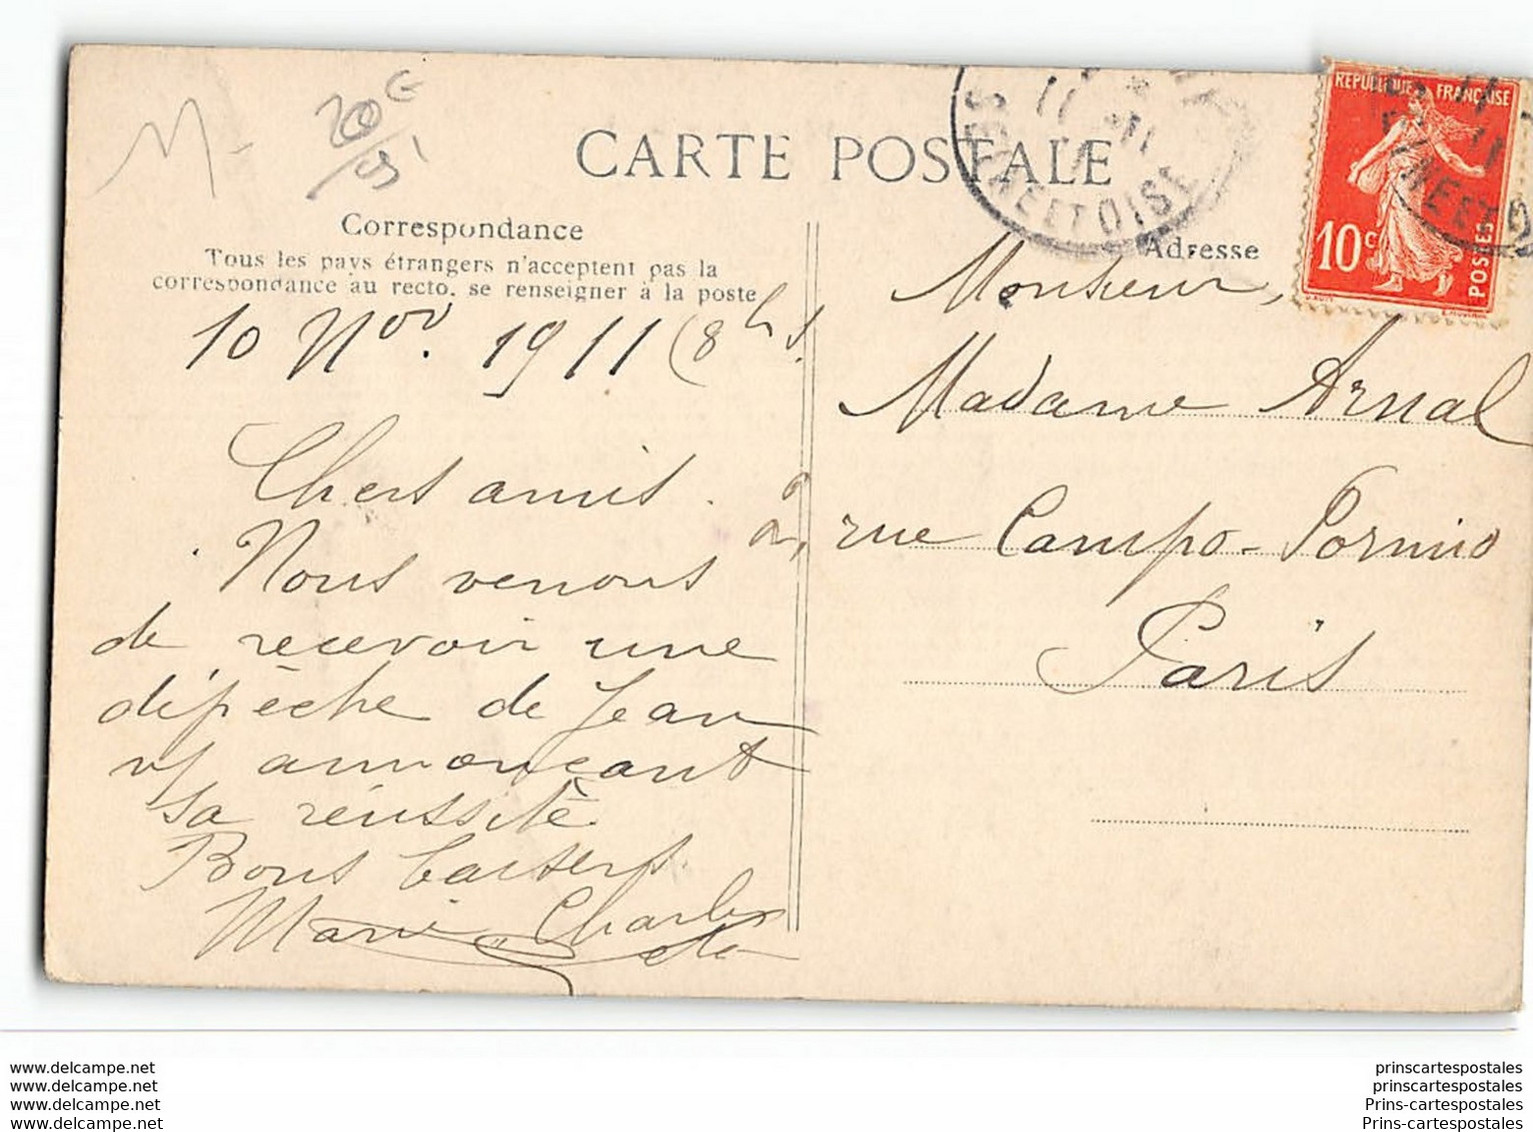 M-
CARTE POSTALE
SEINE ET OISE
11
RÉPUBLIQUE FRANÇAISE
10c
POSTES
Correspondance
Tous les pays étrangers n'acceptent pas la
correspondance au recto. se renseigner à la poste
10 Nov. 1911 (8 hs.
Chers amis.
Nous venons
de recevoir une
dépêche de Jean
ns annonçant
sa réussite
Bons baisers
Marie, Charles
Adresse
Monsieur,
Madame Arnal
2, rue Campo-Formio
Paris
www.delcampe.net
www.delcampe.net
www.delcampe.net
www.delcampe.net
prinscartespostales
prinscartespostales
Prins-cartespostales
Prins-cartespostales